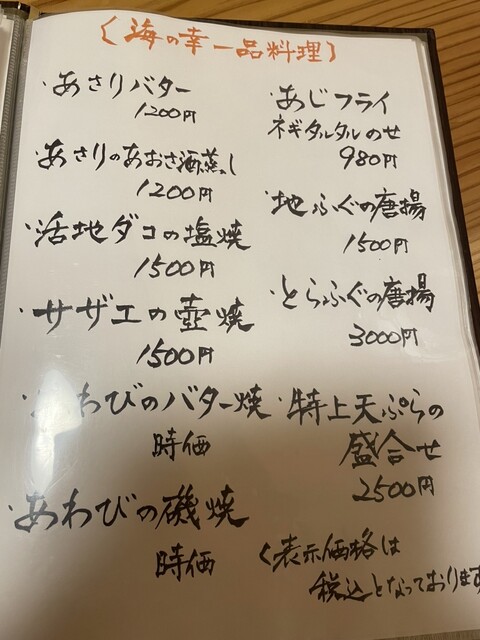 〈海の幸一品料理〉
・あさりバター
1200円
・あさりのあおさ酒蒸し
1200円
・活地ダコの塩焼
1500円
・サザエの壺焼
1500円
・あわびのバター焼
時価
・あわびの磯焼
時価
・あじフライ
ネギタルタルのせ
980円
・地ふぐの唐揚
1500円
・とらふぐの唐揚
3000円
・特上天ぷらの
盛合せ
2500円
〈表示価格は
税込となっております